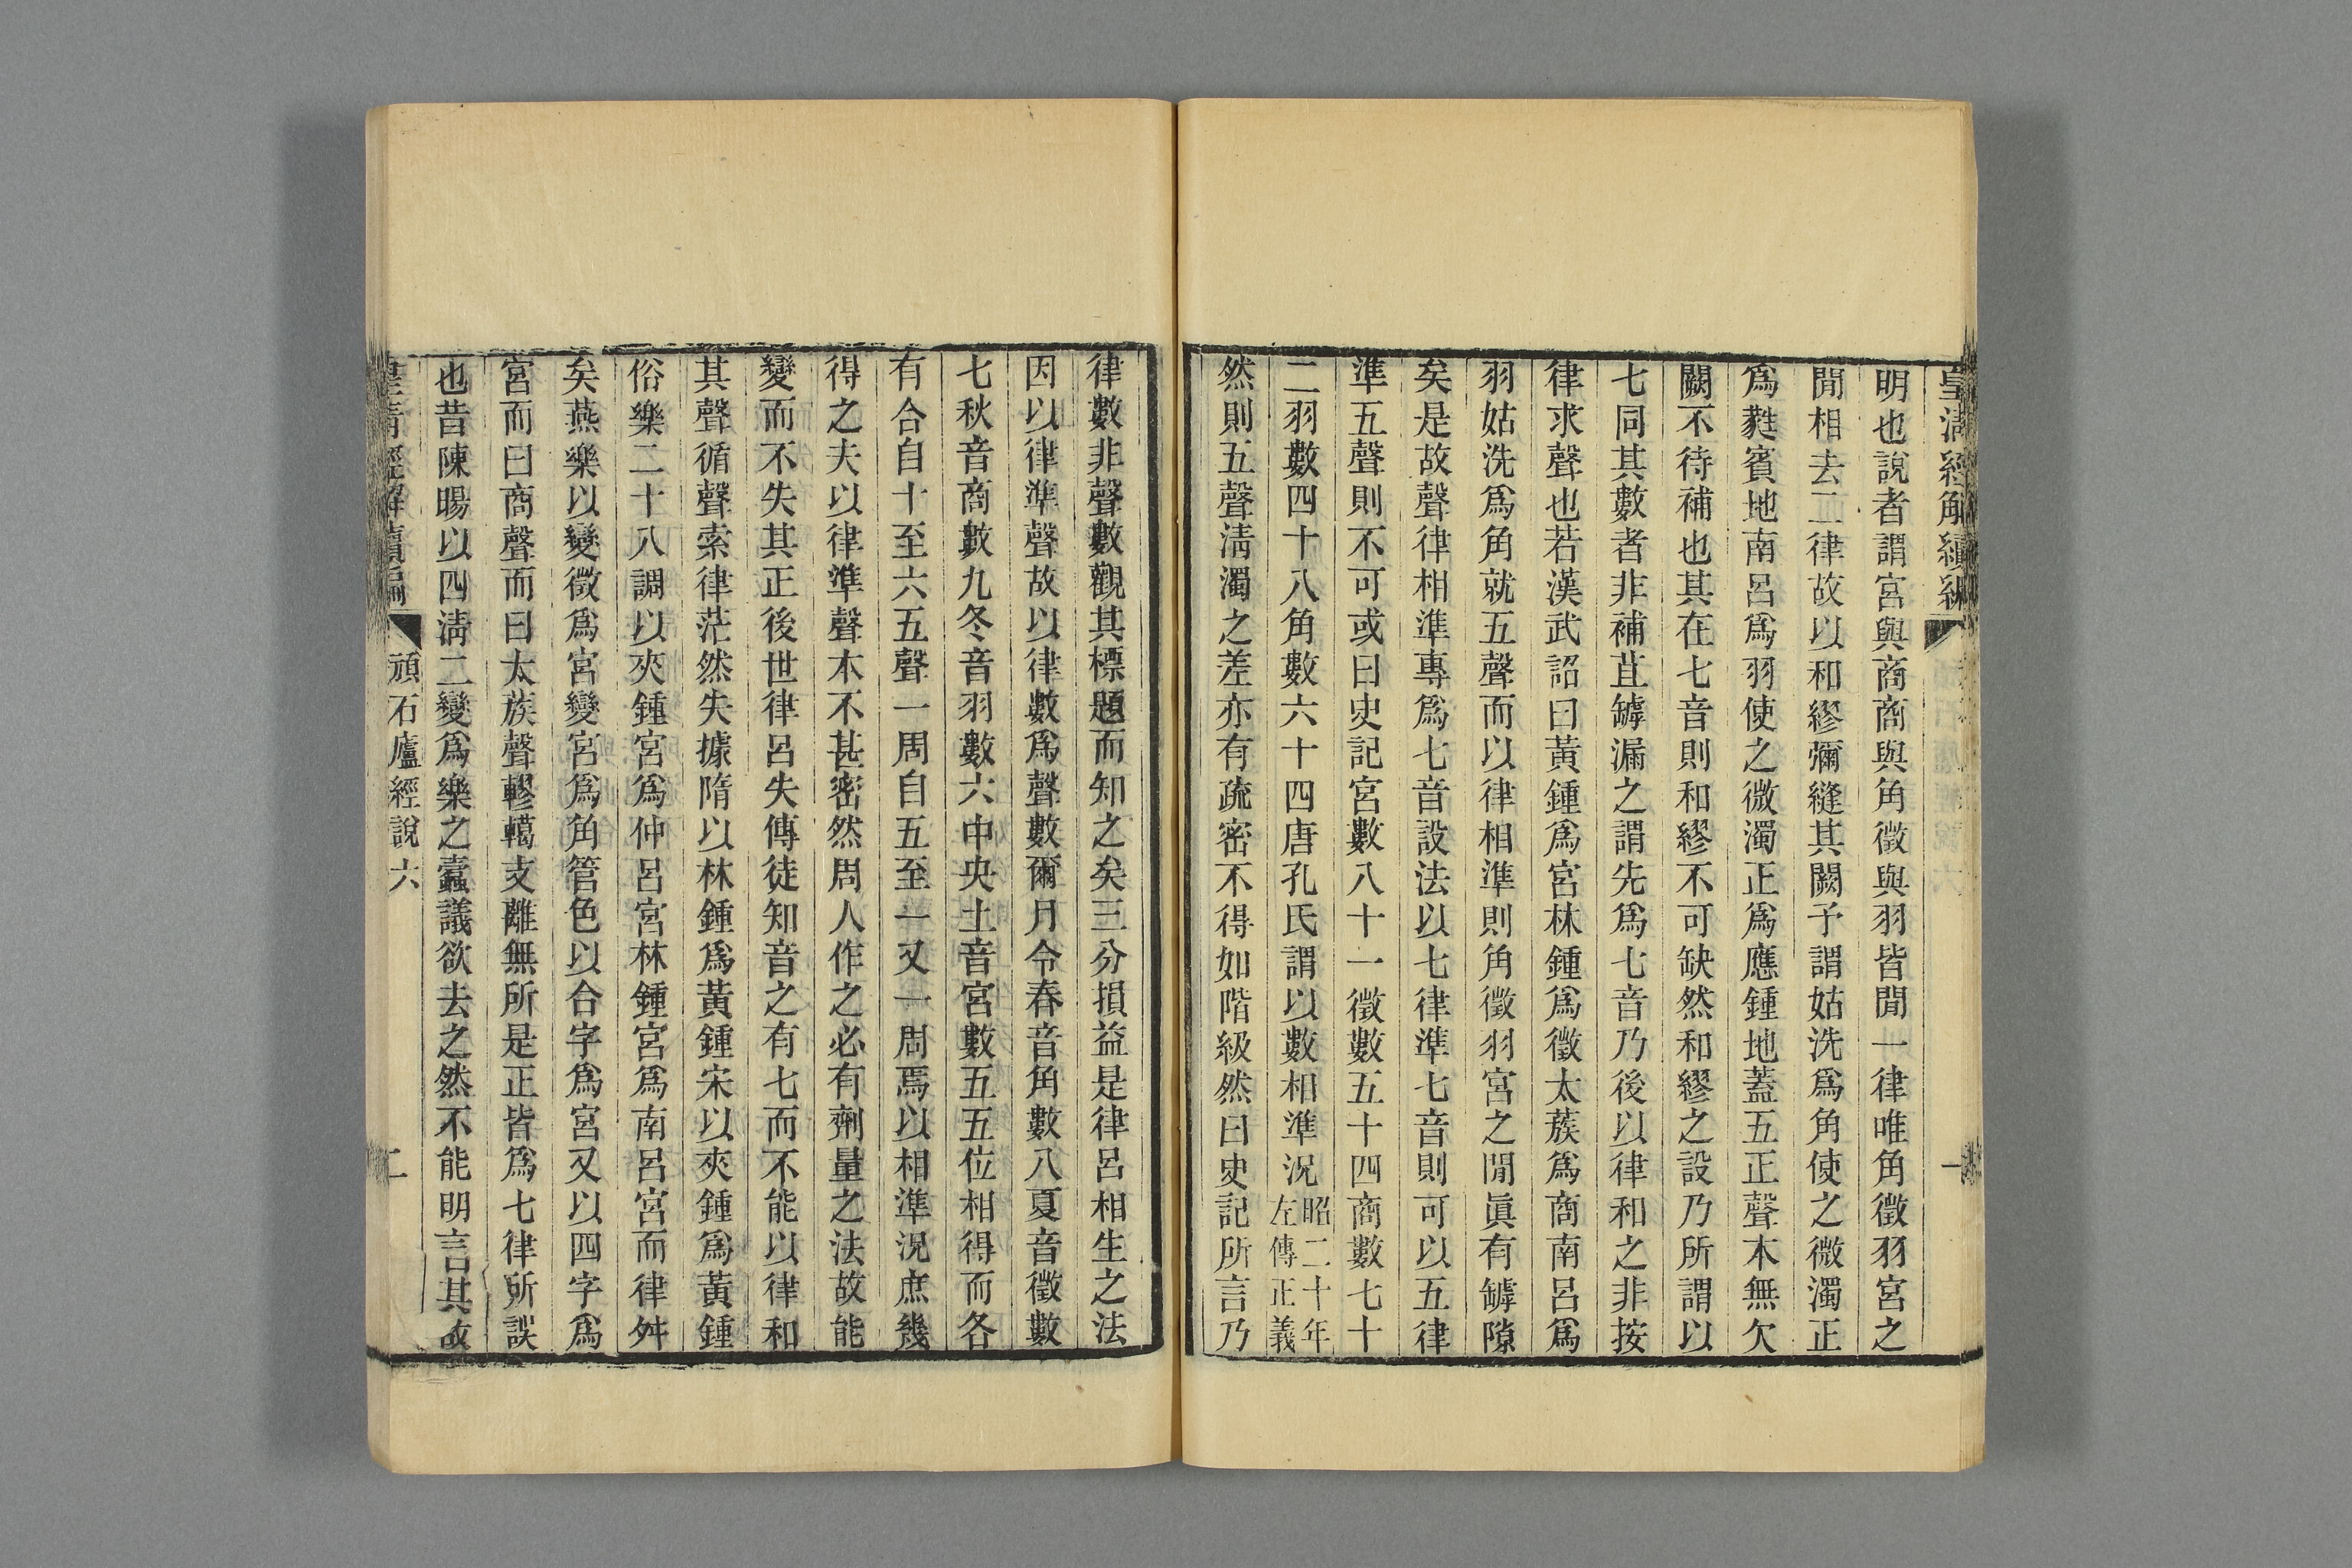 皇清經解續編
一
明也說者謂宮與商商與角徵與羽皆閒一律唯角徵羽宮之
閒相去二律故以和繆彌縫其闕予謂姑洗爲角使之微濁正
爲蕤賓地南呂爲羽使之微濁正爲應鍾地蓋五正聲本無欠
闕不待補也其在七音則和繆不可缺然和繆之設乃所謂以
七同其數者非補苴罅漏之謂先爲七音乃後以律和之非按
律求聲也若漢武詔曰黃鍾爲宮林鍾爲徵太蔟爲商南呂爲
羽姑洗爲角就五聲而以律相準則角徵羽宮之閒眞有罅隙
矣是故聲律相準專爲七音設法以七律準七音則可以五律
準五聲則不可或曰史記宮數八十一徵數五十四商數七十
二羽數四十八角數六十四唐孔氏謂以數相準況昭二十年左傳正義
然則五聲淸濁之差亦有疏密不得如階級然曰史記所言乃
律數非聲數觀其標題而知之矣三分損益是律呂相生之法
因以律準聲故以律數爲聲數爾月令春音角數八夏音徵數
七秋音商數九冬音羽數六中央土音宮數五五位相得而各
有合自十至六五聲一周自五至一又一周焉以相準況庶幾
得之夫以律準聲本不甚密然周人作之必有劑量之法故能
變而不失其正後世律呂失傳徒知音之有七而不能以律和
其聲循聲索律茫然失據隋以林鍾爲黃鍾宋以夾鍾爲黃鍾
俗樂二十八調以夾鍾宮爲仲呂宮林鍾宮爲南呂宮而律舛
矣燕樂以變徵爲宮變宮爲角管色以合字爲宮又以四字爲
宮而曰商聲而曰太族聲轇轕支離無所是正皆爲七律所誤
也昔陳暘以四淸二變爲樂之蠹議欲去之然不能明言其故
皇清經解續編
頑石廬經說六
二